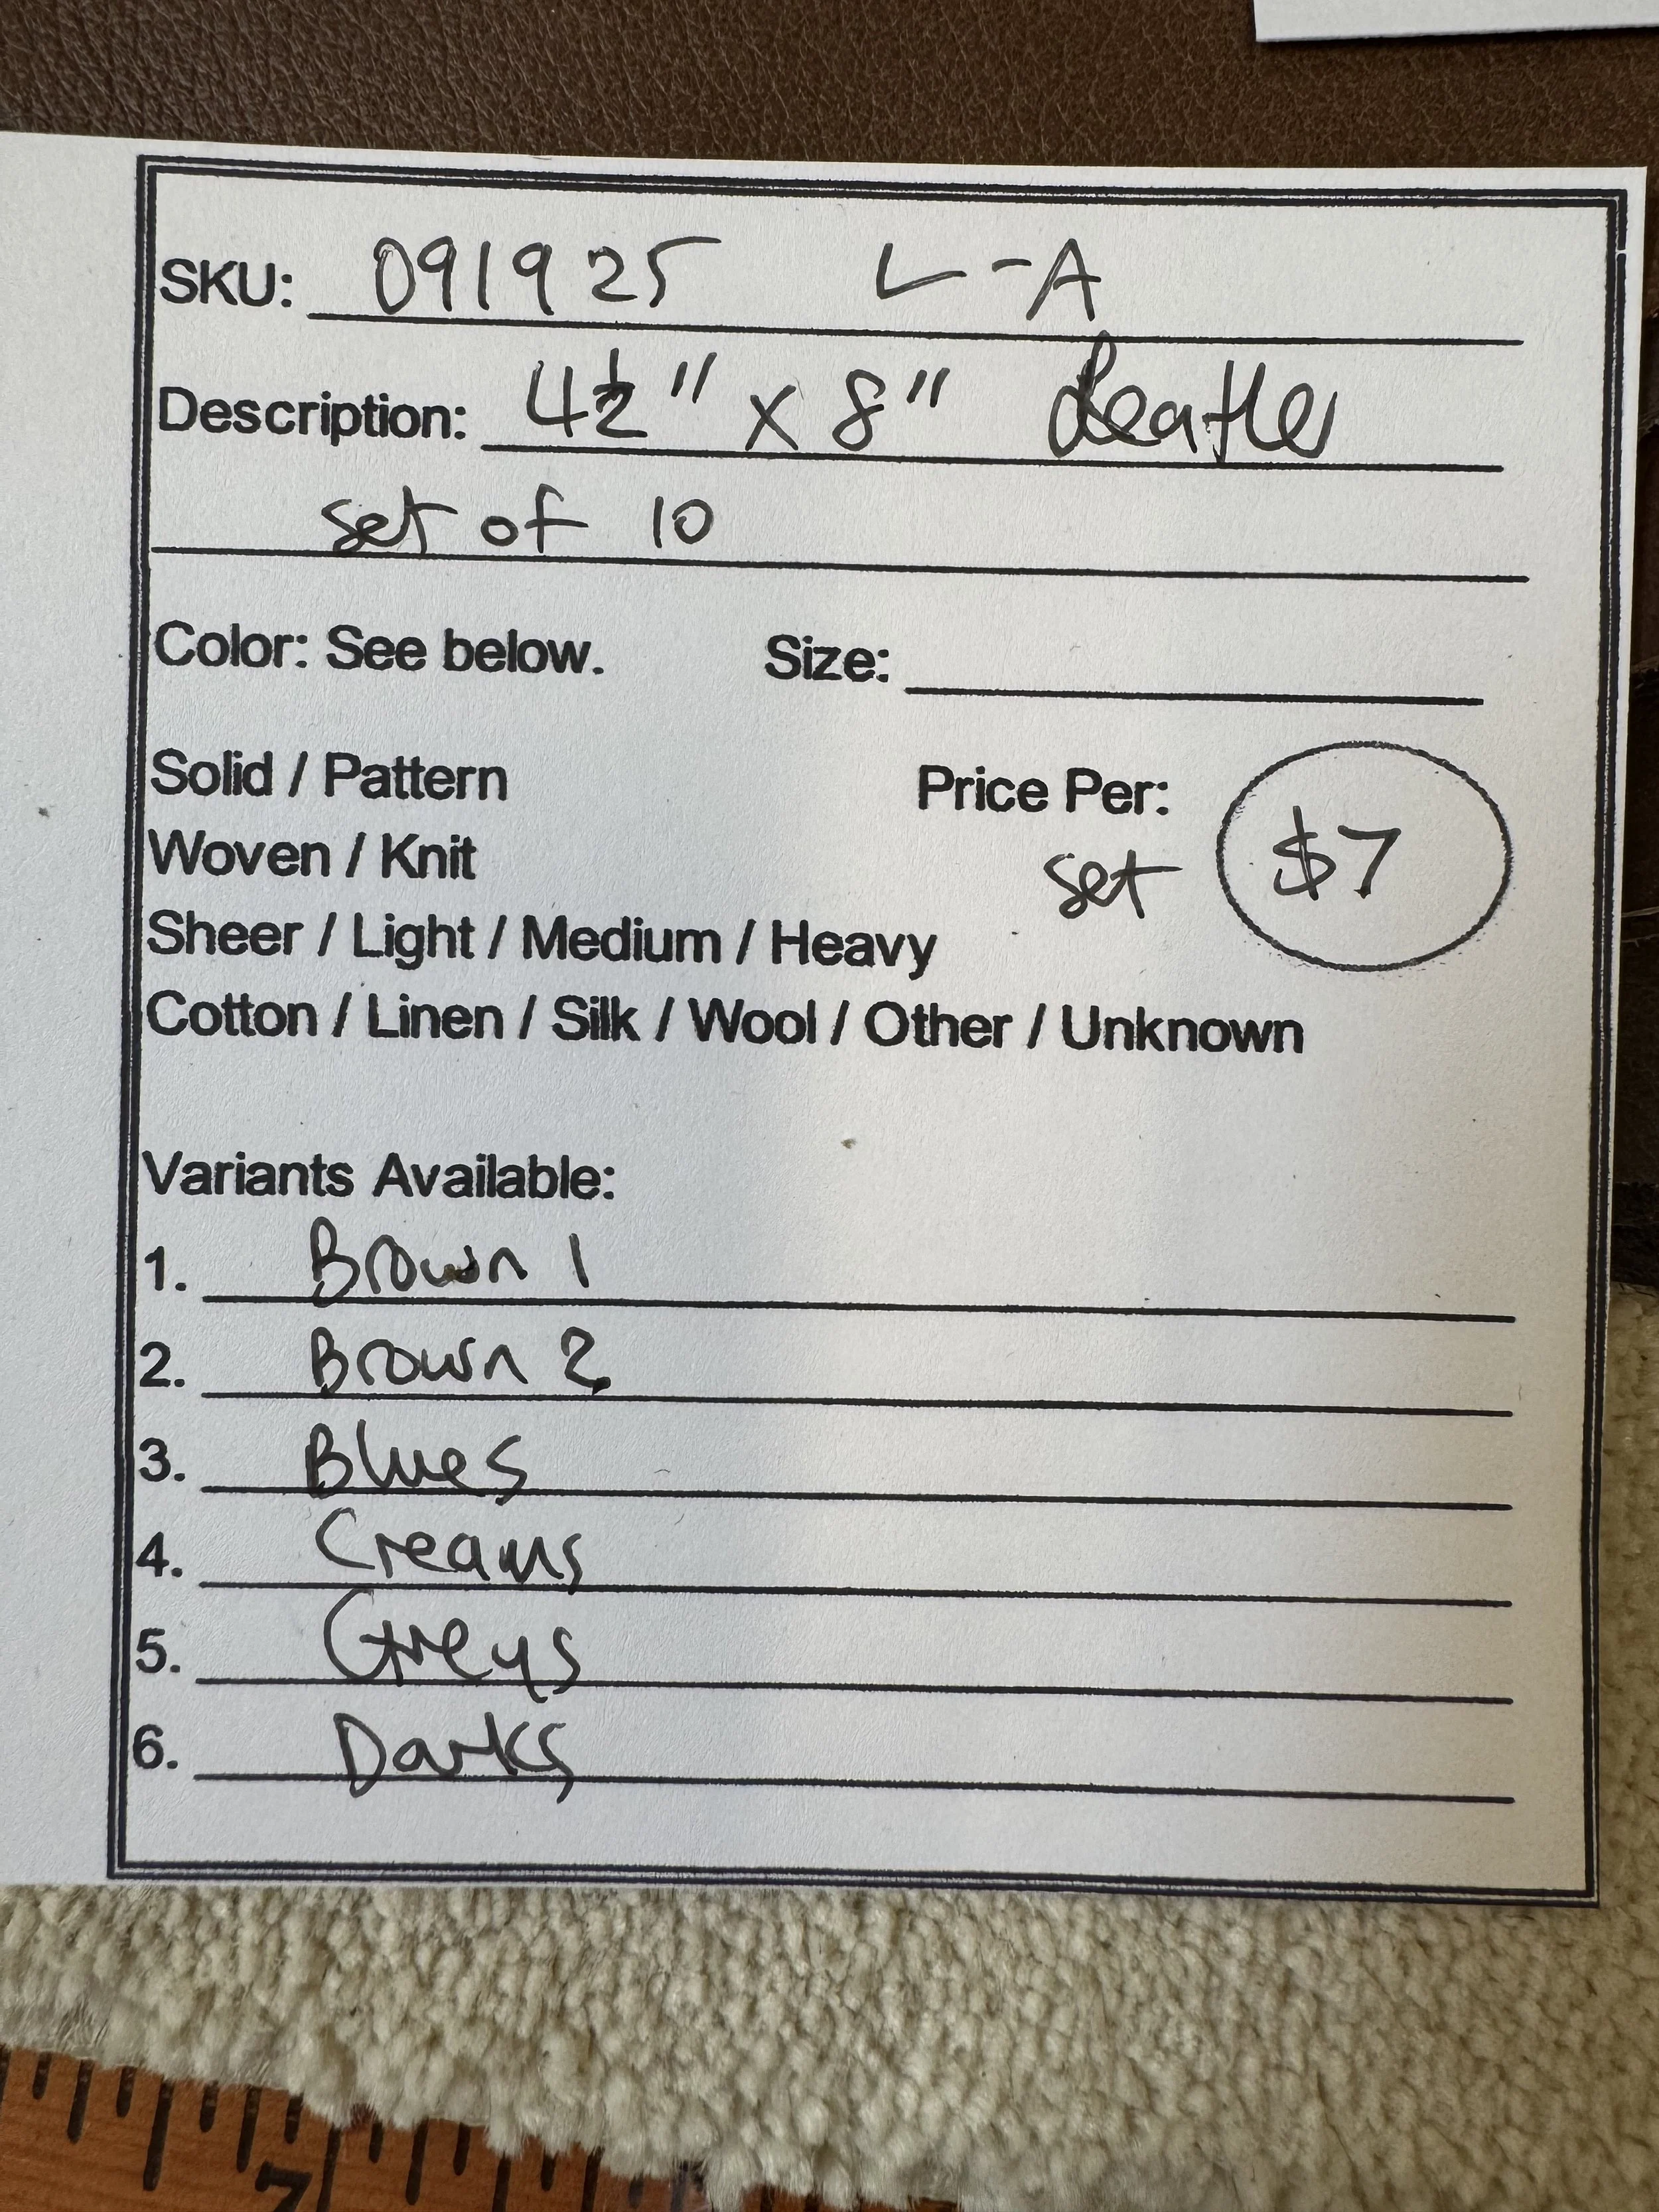 SKU: 091925 L-A
Description: 4½" x 8" Leather
set of 10
Color: See below. Size:
Solid / Pattern Price Per:
Woven / Knit set $7
Sheer / Light / Medium / Heavy
Cotton / Linen / Silk / Wool / Other / Unknown
Variants Available:
1. Brown 1
2. Brown 2
3. Blues
4. Creams
5. Greys
6. Darks
7